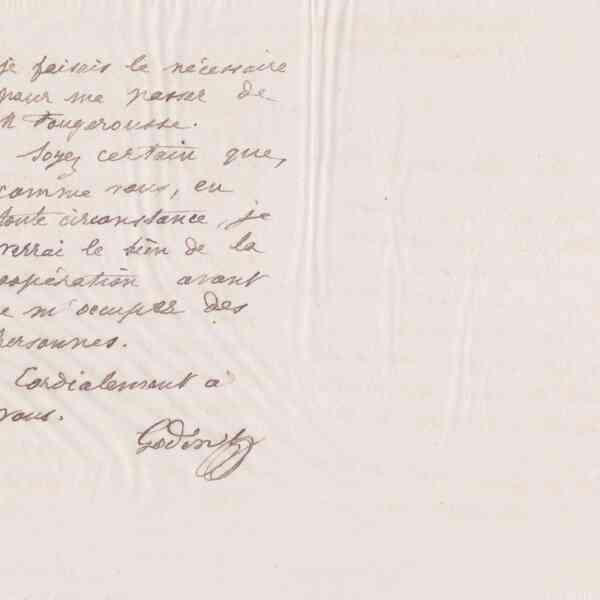 je faisais le nécessaire
pour me passer de
M Fougerousse.
Soyez certain que,
comme vous, en
toute circonstance, je
verrai le bien de la
coopération avant
de m'occuper des
personnes.
Cordialement à
vous.
Godin